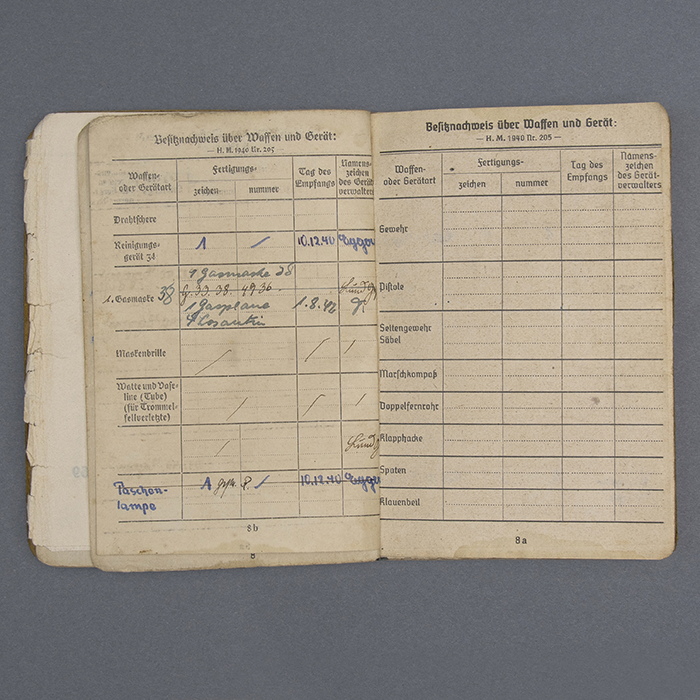 Besitznachweis über Waffen und Gerät:
— H. M. 1940 Nr. 205 —
Waffen- oder Gerätart
Fertigungs-
zeichen
nummer
Tag des Empfangs
Namens-zeichen des Gerät-verwalters
Drahtschere
Reinigungs-
gerät 34
1
10.12.40
1 Gasmaske 38
1. Gasmaske 38
33. 38. 4936
1 Gasplane
1.8.42
4 Losantin
Maskenbrille
Watte und Vase-
line (Tube)
(für Trommel-
fellverletzte)
Taschen-
lampe
1
10.12.40
8b
8
Besitznachweis über Waffen und Gerät:
— H. M. 1940 Nr. 205 —
Waffen-
oder Gerätart
Fertigungs-
zeichen
nummer
Tag des
Empfangs
Namens-
zeichen
des Gerät-
verwalters
Gewehr
Pistole
Seitengewehr
Säbel
Marschkompaß
Doppelfernrohr
Klapphacke
Spaten
Klauenbeil
8a